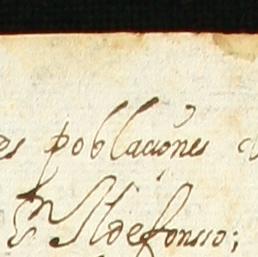 es poblaciónes
Sn Ildefonsso;